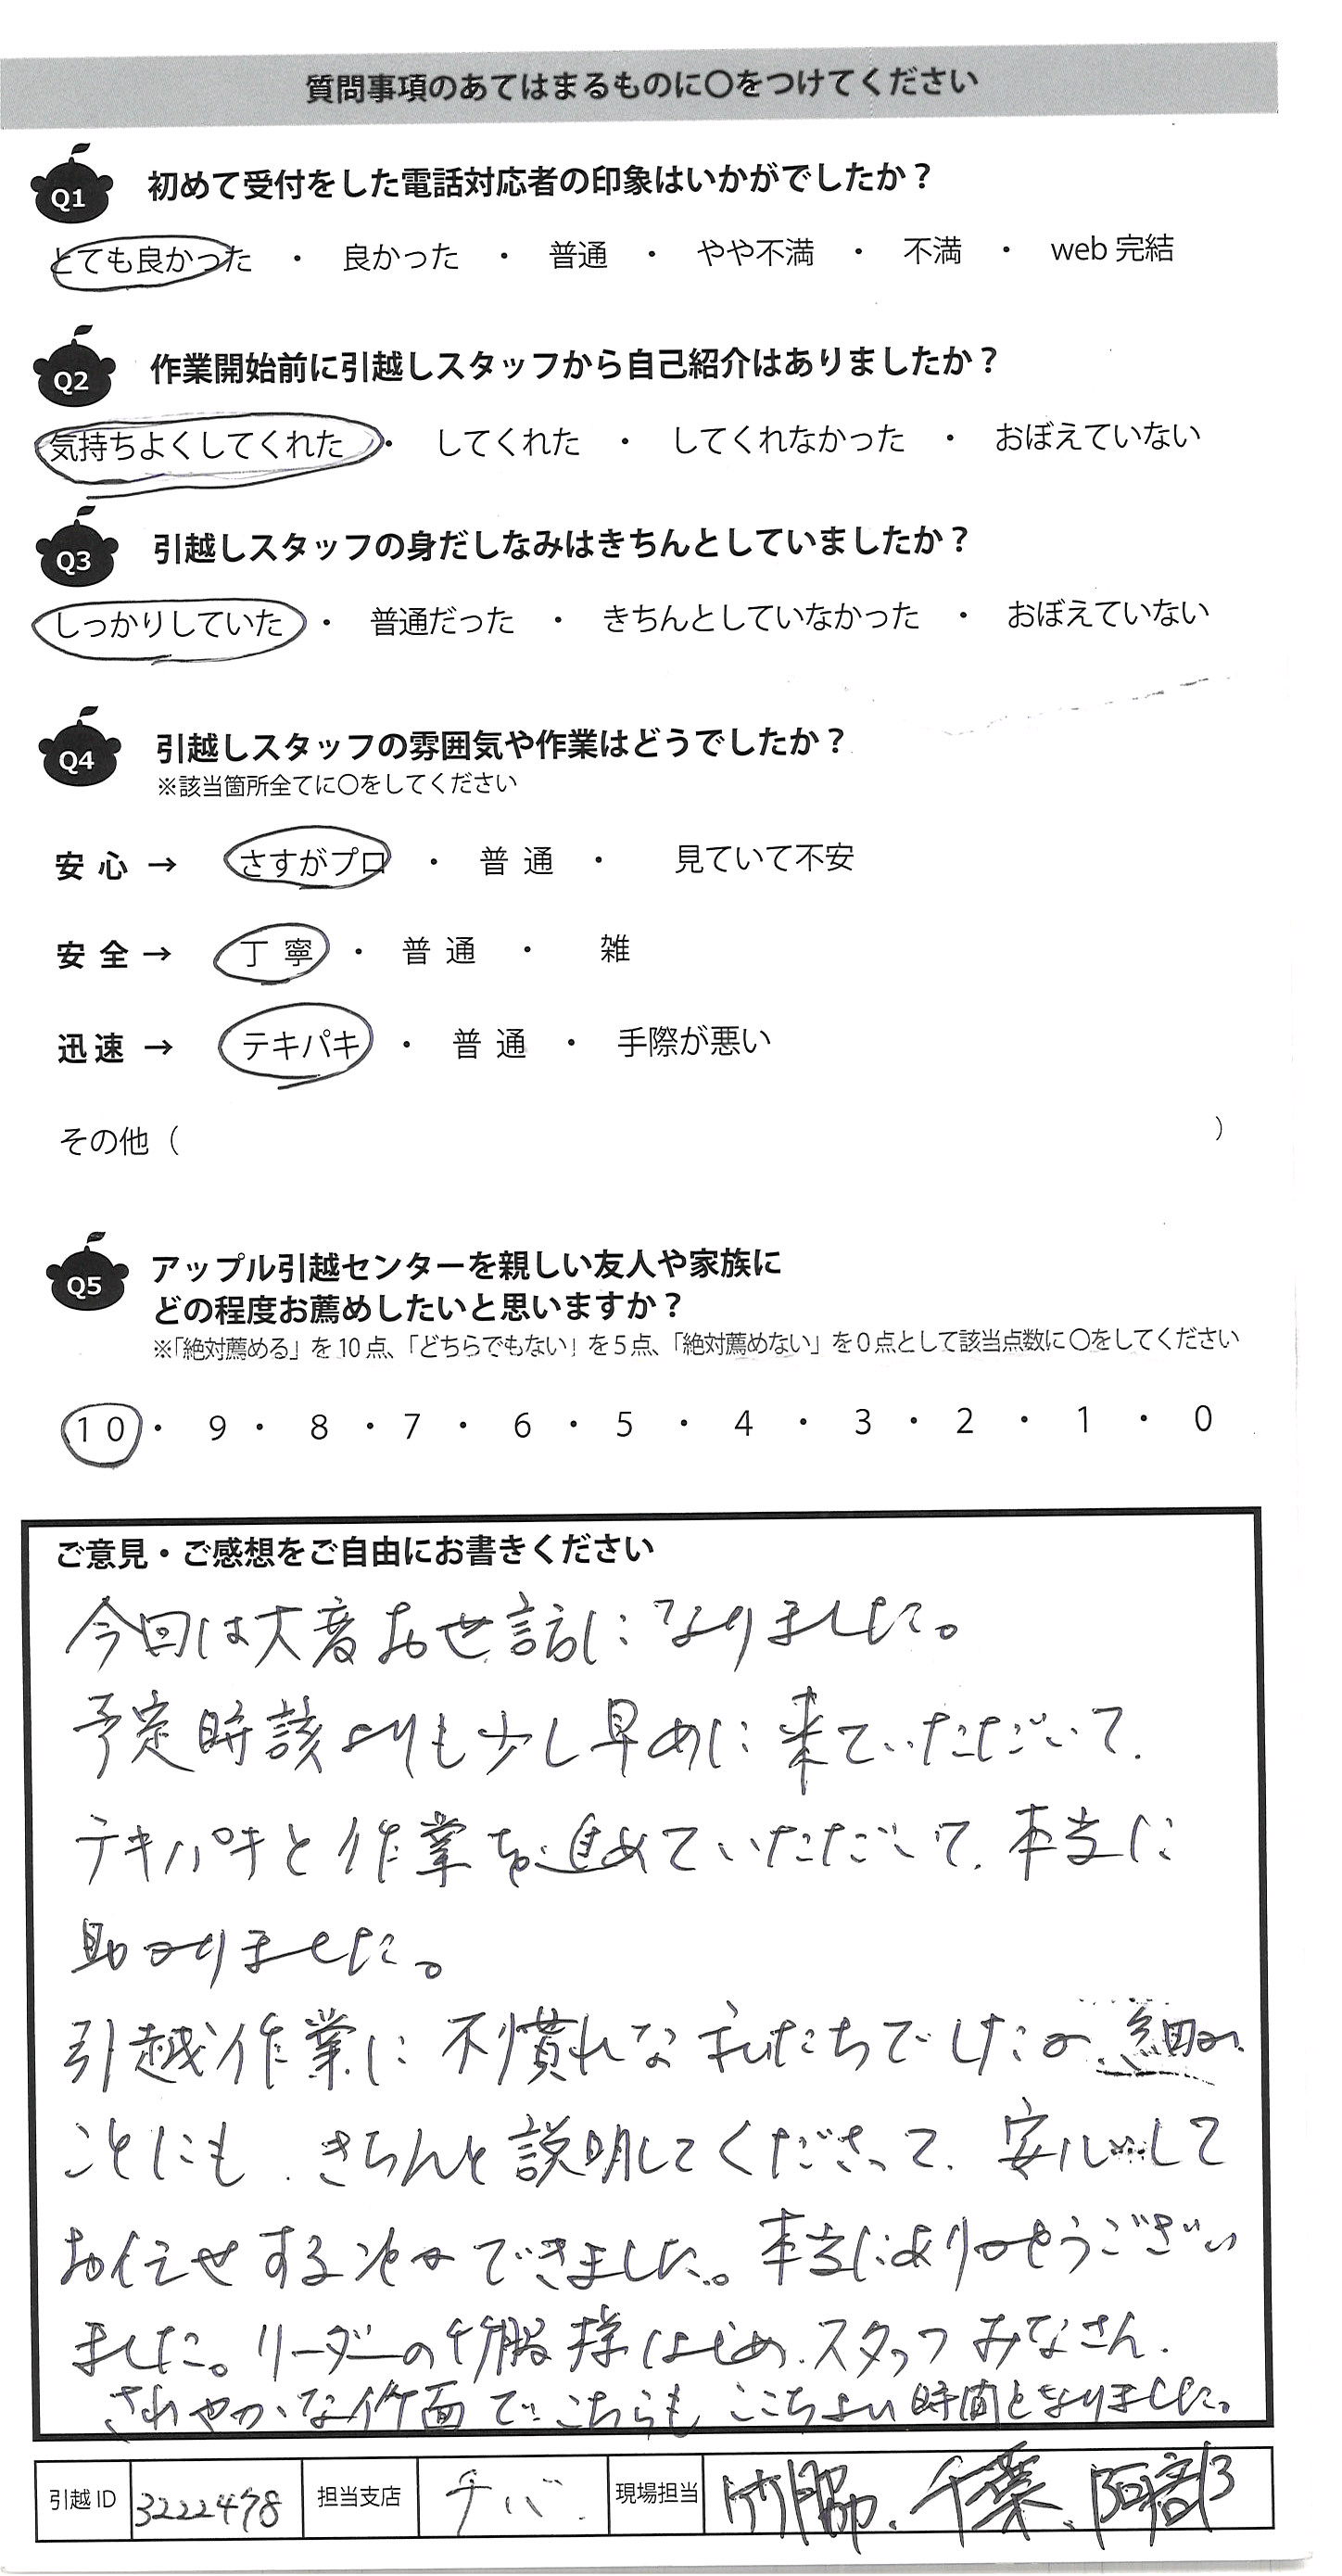 質問事項のあてはまるものに〇をつけてください
Q1 初めて受付をした電話対応者の印象はいかがでしたか？
とても良かった ・ 良かった ・ 普通 ・ やや不満 ・ 不満 ・ web 完結
Q2 作業開始前に引越しスタッフから自己紹介はありましたか？
気持ちよくしてくれた ・ してくれた ・ してくれなかった ・ おぼえていない
Q3 引越しスタッフの身だしなみはきちんとしていましたか？
しっかりしていた ・ 普通だった ・ きちんとしていなかった ・ おぼえていない
Q4 引越しスタッフの雰囲気や作業はどうでしたか？
※該当箇所全てに〇をしてください
安心 → さすがプロ ・ 普通 ・ 見ていて不安
安全 → 丁寧 ・ 普通 ・ 雑
迅速 → テキパキ ・ 普通 ・ 手際が悪い
その他（ ）
Q5 アップル引越センターを親しい友人や家族に
どの程度お薦めしたいと思いますか？
※「絶対薦める」を10点、「どちらでもない」を5点、「絶対薦めない」を0点として該当点数に〇をしてください
10 ・ 9 ・ 8 ・ 7 ・ 6 ・ 5 ・ 4 ・ 3 ・ 2 ・ 1 ・ 0
ご意見・ご感想をご自由にお書きください
今回は大変お世話になりました。
予定時該よりも少し早めに来ていただいて、
テキパキと作業を進めていただいて、本当に
助かりました。
引越作業に不慣れな私たちでしたが、細か
ことにも、きちんと説明してくださって、安心して
お任せすることができました。本当にありがとうござい
ました。リーダーの竹脇様はじめ、スタッフみなさん、
さわやかな笑面で、こちらもここちよい時間となりました。
引越ID 3222478 担当支店 千バ 現場担当 竹脇、千葉、阿部